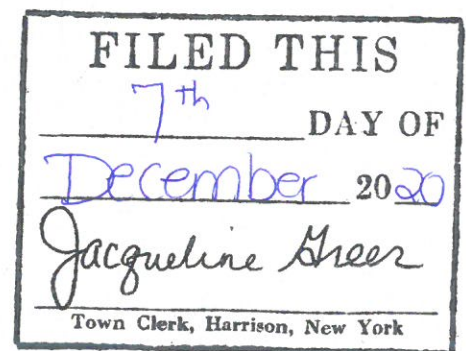 FILED THIS
7th DAY OF
December 2020
Jacqueline Greer
Town Clerk, Harrison, New York